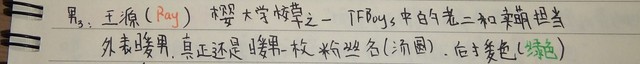 男3：王源（Ray） 樱大学校草之一 TFBoys中的老二和卖萌担当
外表暖男，真正还是暖男一枚 粉丝名（汤圆）.应援色（绿色）